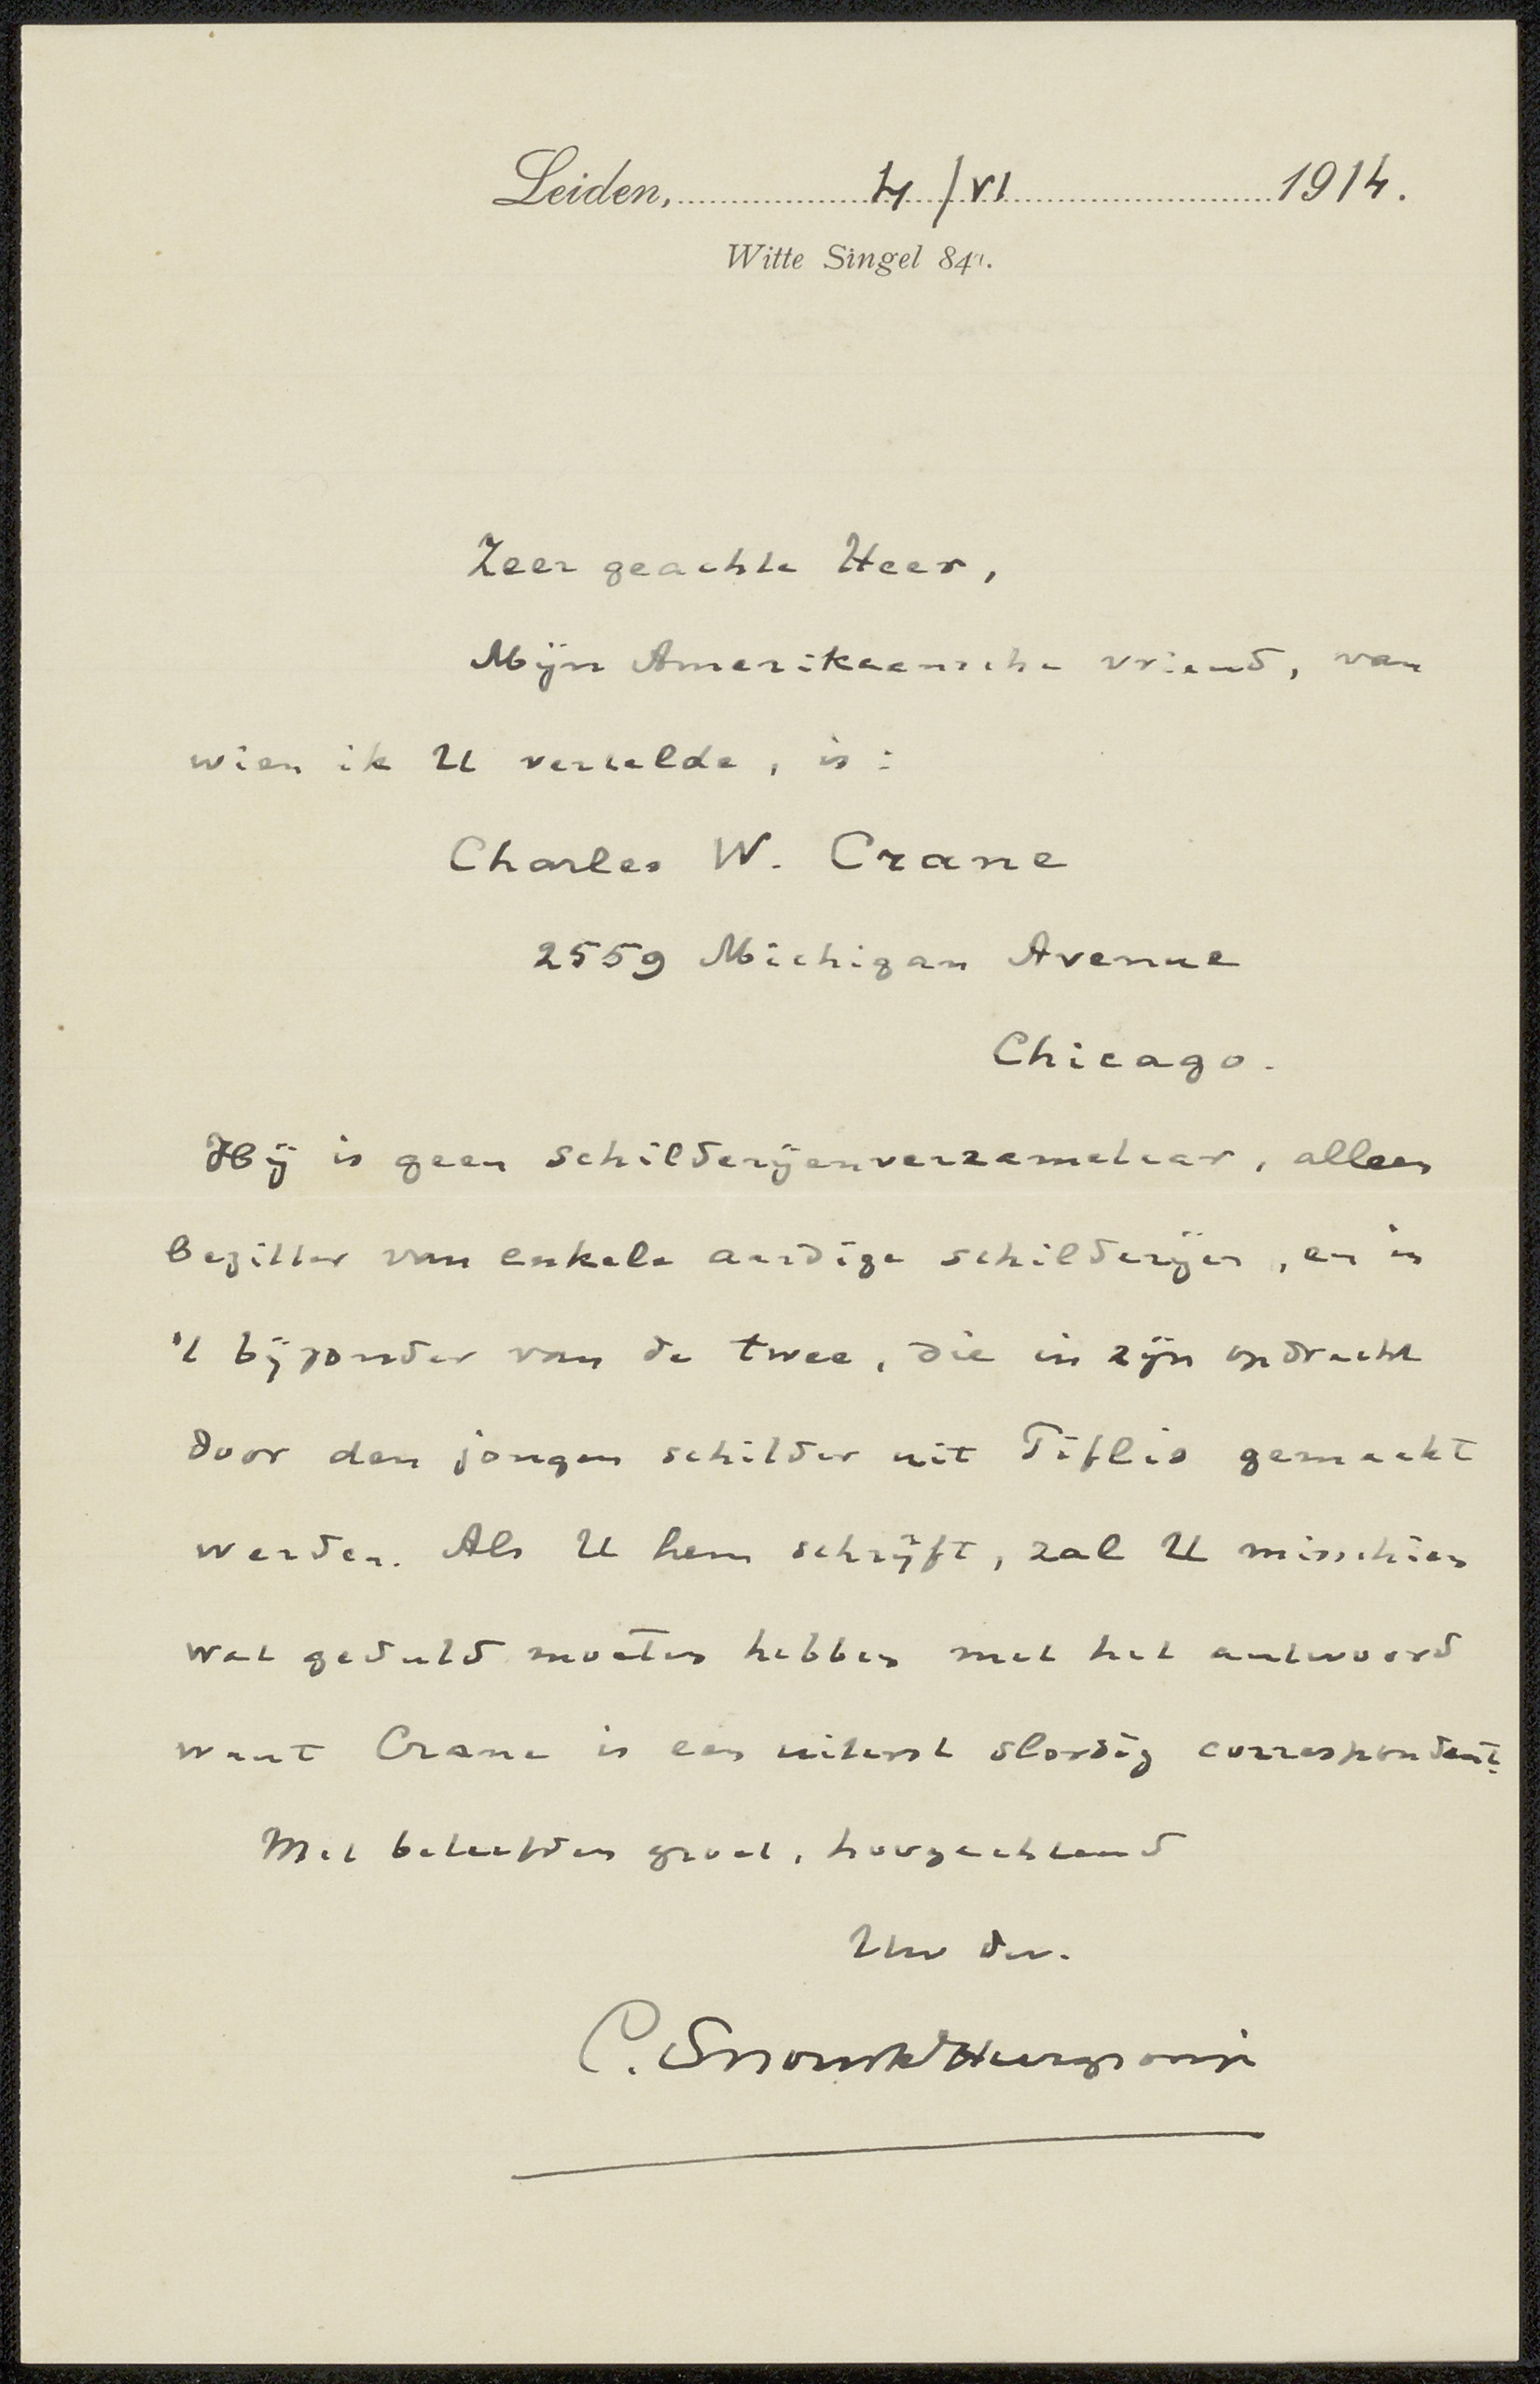 Leiden, 4/VI 1914.
Witte Singel 84a.
Zeer geachte Heer,
Mijn Amerikaansche vriend, van
wien ik U vertelde, is:
Charles W. Crane
2559 Michigan Avenue
Chicago.
Hij is geen schilderijenverzamelaar, alleen
bezitter van enkele aardige schilderijen, en in
't bijzonder van de twee, die in zijn opdracht
door den jongen schilder uit Tiflis gemaakt
werden. Als U hem schrijft, zal U misschien
wat geduld moeten hebben met het antwoord
want Crane is een uiterst slordig correspondent.
Met beleefden groet, hoogachtend
Uw dw.
C. Snouck Hurgronje